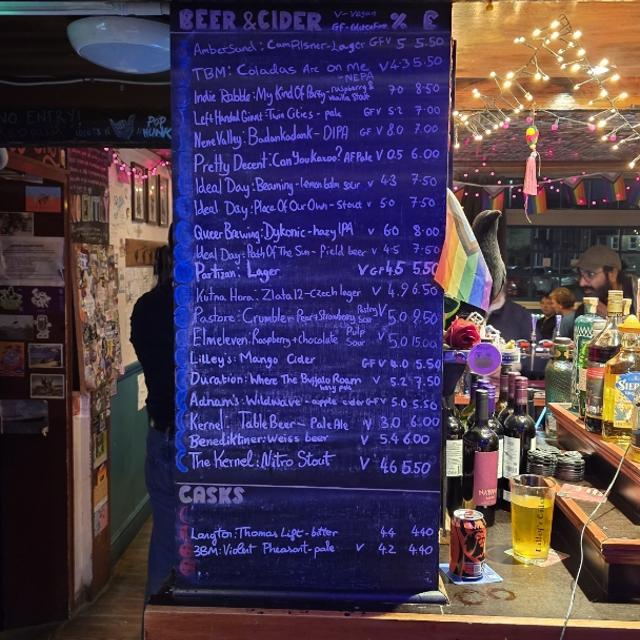 BEER & CIDER V-Vegan GF-Gluten Free % £
Ambersand: Cam Pilsner-Lager GFV 5 5.50
TBM: Coladas Are on me - NEPA V 4.3 5.50
Indie Rabble: My Kind Of Party - raspberry & vanilla stout 7.0 8.50
Left Handed Giant: Two Cities - pale GFV 5.2 7.00
Nene Valley: Badonkadonk - DIPA GFV 8.0 7.00
Pretty Decent: Can You Kazoo? AF Pale V 0.5 6.00
Ideal Day: Beaming - lemon balm sour V 4.3 7.50
Ideal Day: Place Of Our Own - Stout V 5.0 7.50
Queer Brewing: Dykonic - hazy IPA V 6.0 8.00
Ideal Day: Posh Of The Sun - field beer V 4.5 7.50
Partizan: Lager V GF 4.5 5.50
Kutna Hora: Zlata 12 - Czech lager V 4.9 6.50
Pastore: Crumble - Pear & Strawberry Pastry Sour V 5.0 9.50
Elmeleven: Raspberry + Chocolate Pulp Sour V 5.0 15.00
Lilley's: Mango Cider GFV 4.0 5.50
Duration: Where The Buffalo Roam hazy pale V 5.2 7.50
Adnam's: Wildwave - apple cider GFV 5.0 5.50
Kernel: Table Beer - Pale Ale V 3.0 6.00
Benediktiner: Weiss beer V 5.4 6.00
The Kernel: Nitro Stout V 4.6 5.50
CASKS
Langton: Thomas Lift - bitter 4.4 4.40
3BM: Violent Pheasant - pale V 4.2 4.40
NO ENTRY!
POP
HUNK
Lilley's Cider